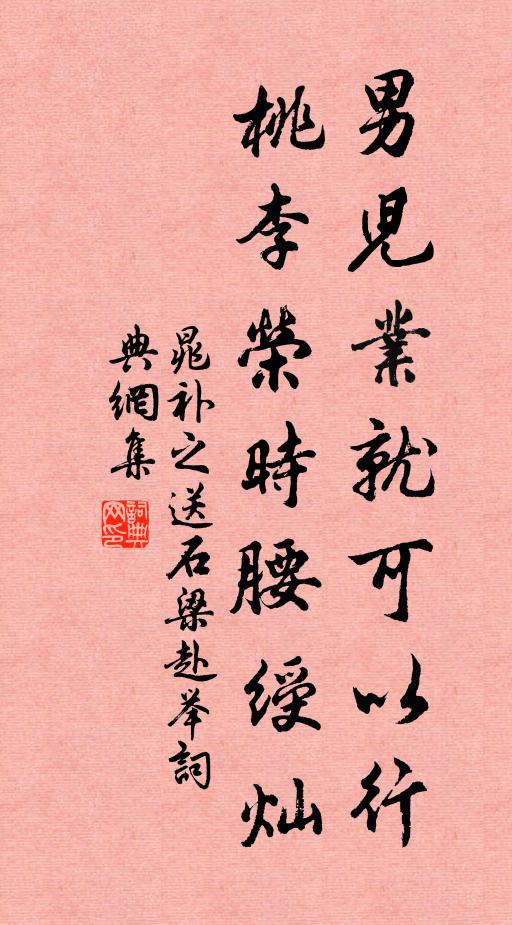 男児業就可以行
桃李榮時腰綬灿
晁补之送石梁赴举詞
典網集
詞典网印